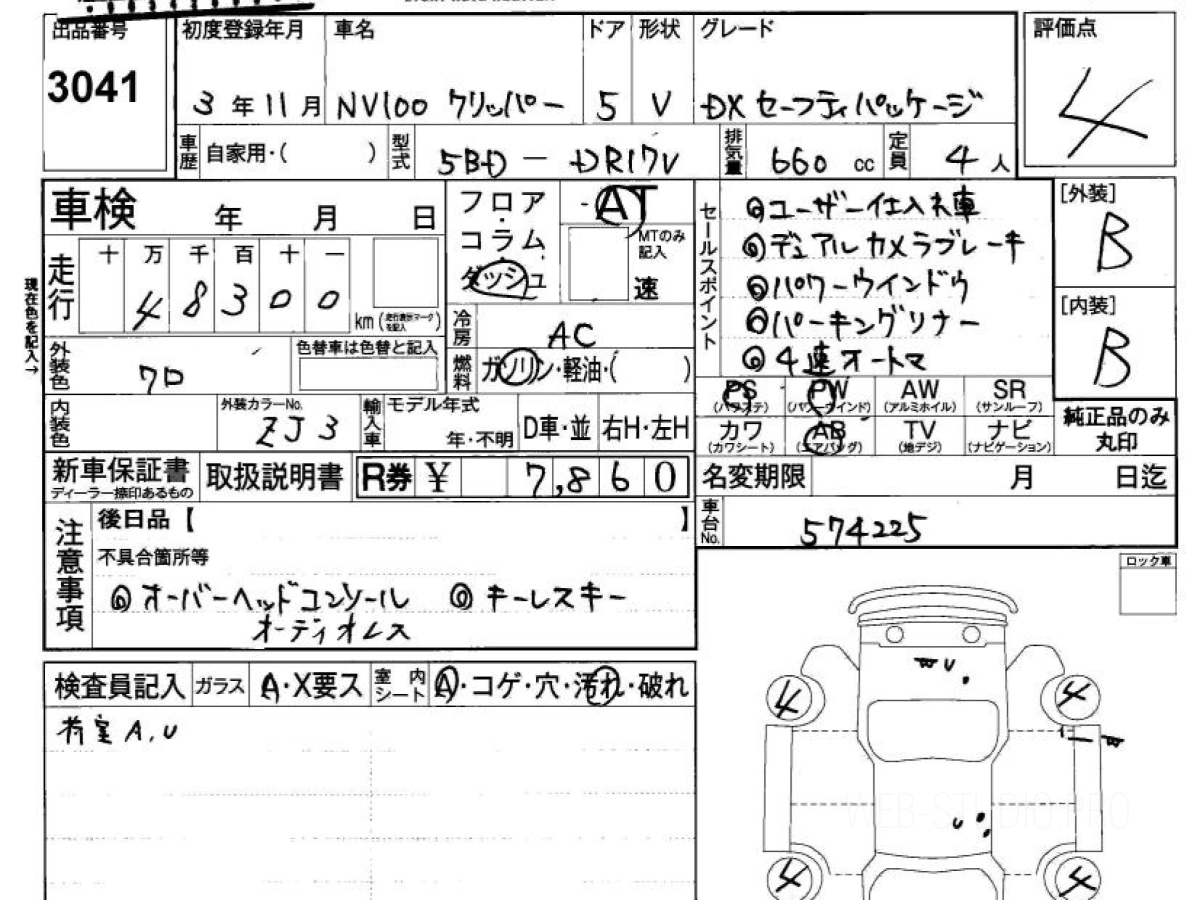 出品番号 初度登録年月 車名 ドア 形状 グレード 評価点
3041 3年11月 NV100 クリッパー 5 V DX セーフティパッケージ 4
車歴 自家用・( ) 型式 5BD-DR17V 排気量 660 cc 定員 4人
車検 年 月 日
フロア・コラム・ダッシュ
AT
MTのみ記入
速
セールスポイント
◎ユーザー仕入れ車
◎デュアルカメラブレーキ
◎パワーウインドウ
◎パーキングソナー
◎4速オートマ
[外装]
B
[内装]
B
走行 十 万 千 百 十 一
4 8 3 0 0 km (走行表示マークを記入)
現在色を記入→
冷房 AC
燃料 ガソリン・軽油・( )
外装色 クロ 色替車は色替と記入
PS (パワステ) PW (パワーウインド) AW (アルミホイル) SR (サンルーフ)
カワ (カワシート) AB (エアバッグ) TV (地デジ) ナビ (ナビゲーション)
純正品のみ丸印
内装色 外装カラーNo. ZJ3 輸入車 モデル年式 年・不明 D車・並 右H・左H
新車保証書 ディーラー捺印あるもの 取扱説明書 R券 ¥ 7,860
名変期限 月 日迄
車台No. 574225
注意事項
後日品【 】
不具合箇所等
◎オーバーヘッドコンソール ◎キーレスキー
オーディオレス
ロック車
検査員記入 ガラス A・X要ス 室内シート A・コゲ・穴・汚れ・破れ
荷室 A,U
U
4 4
U
4 4
WEB-STUDIO.PRO